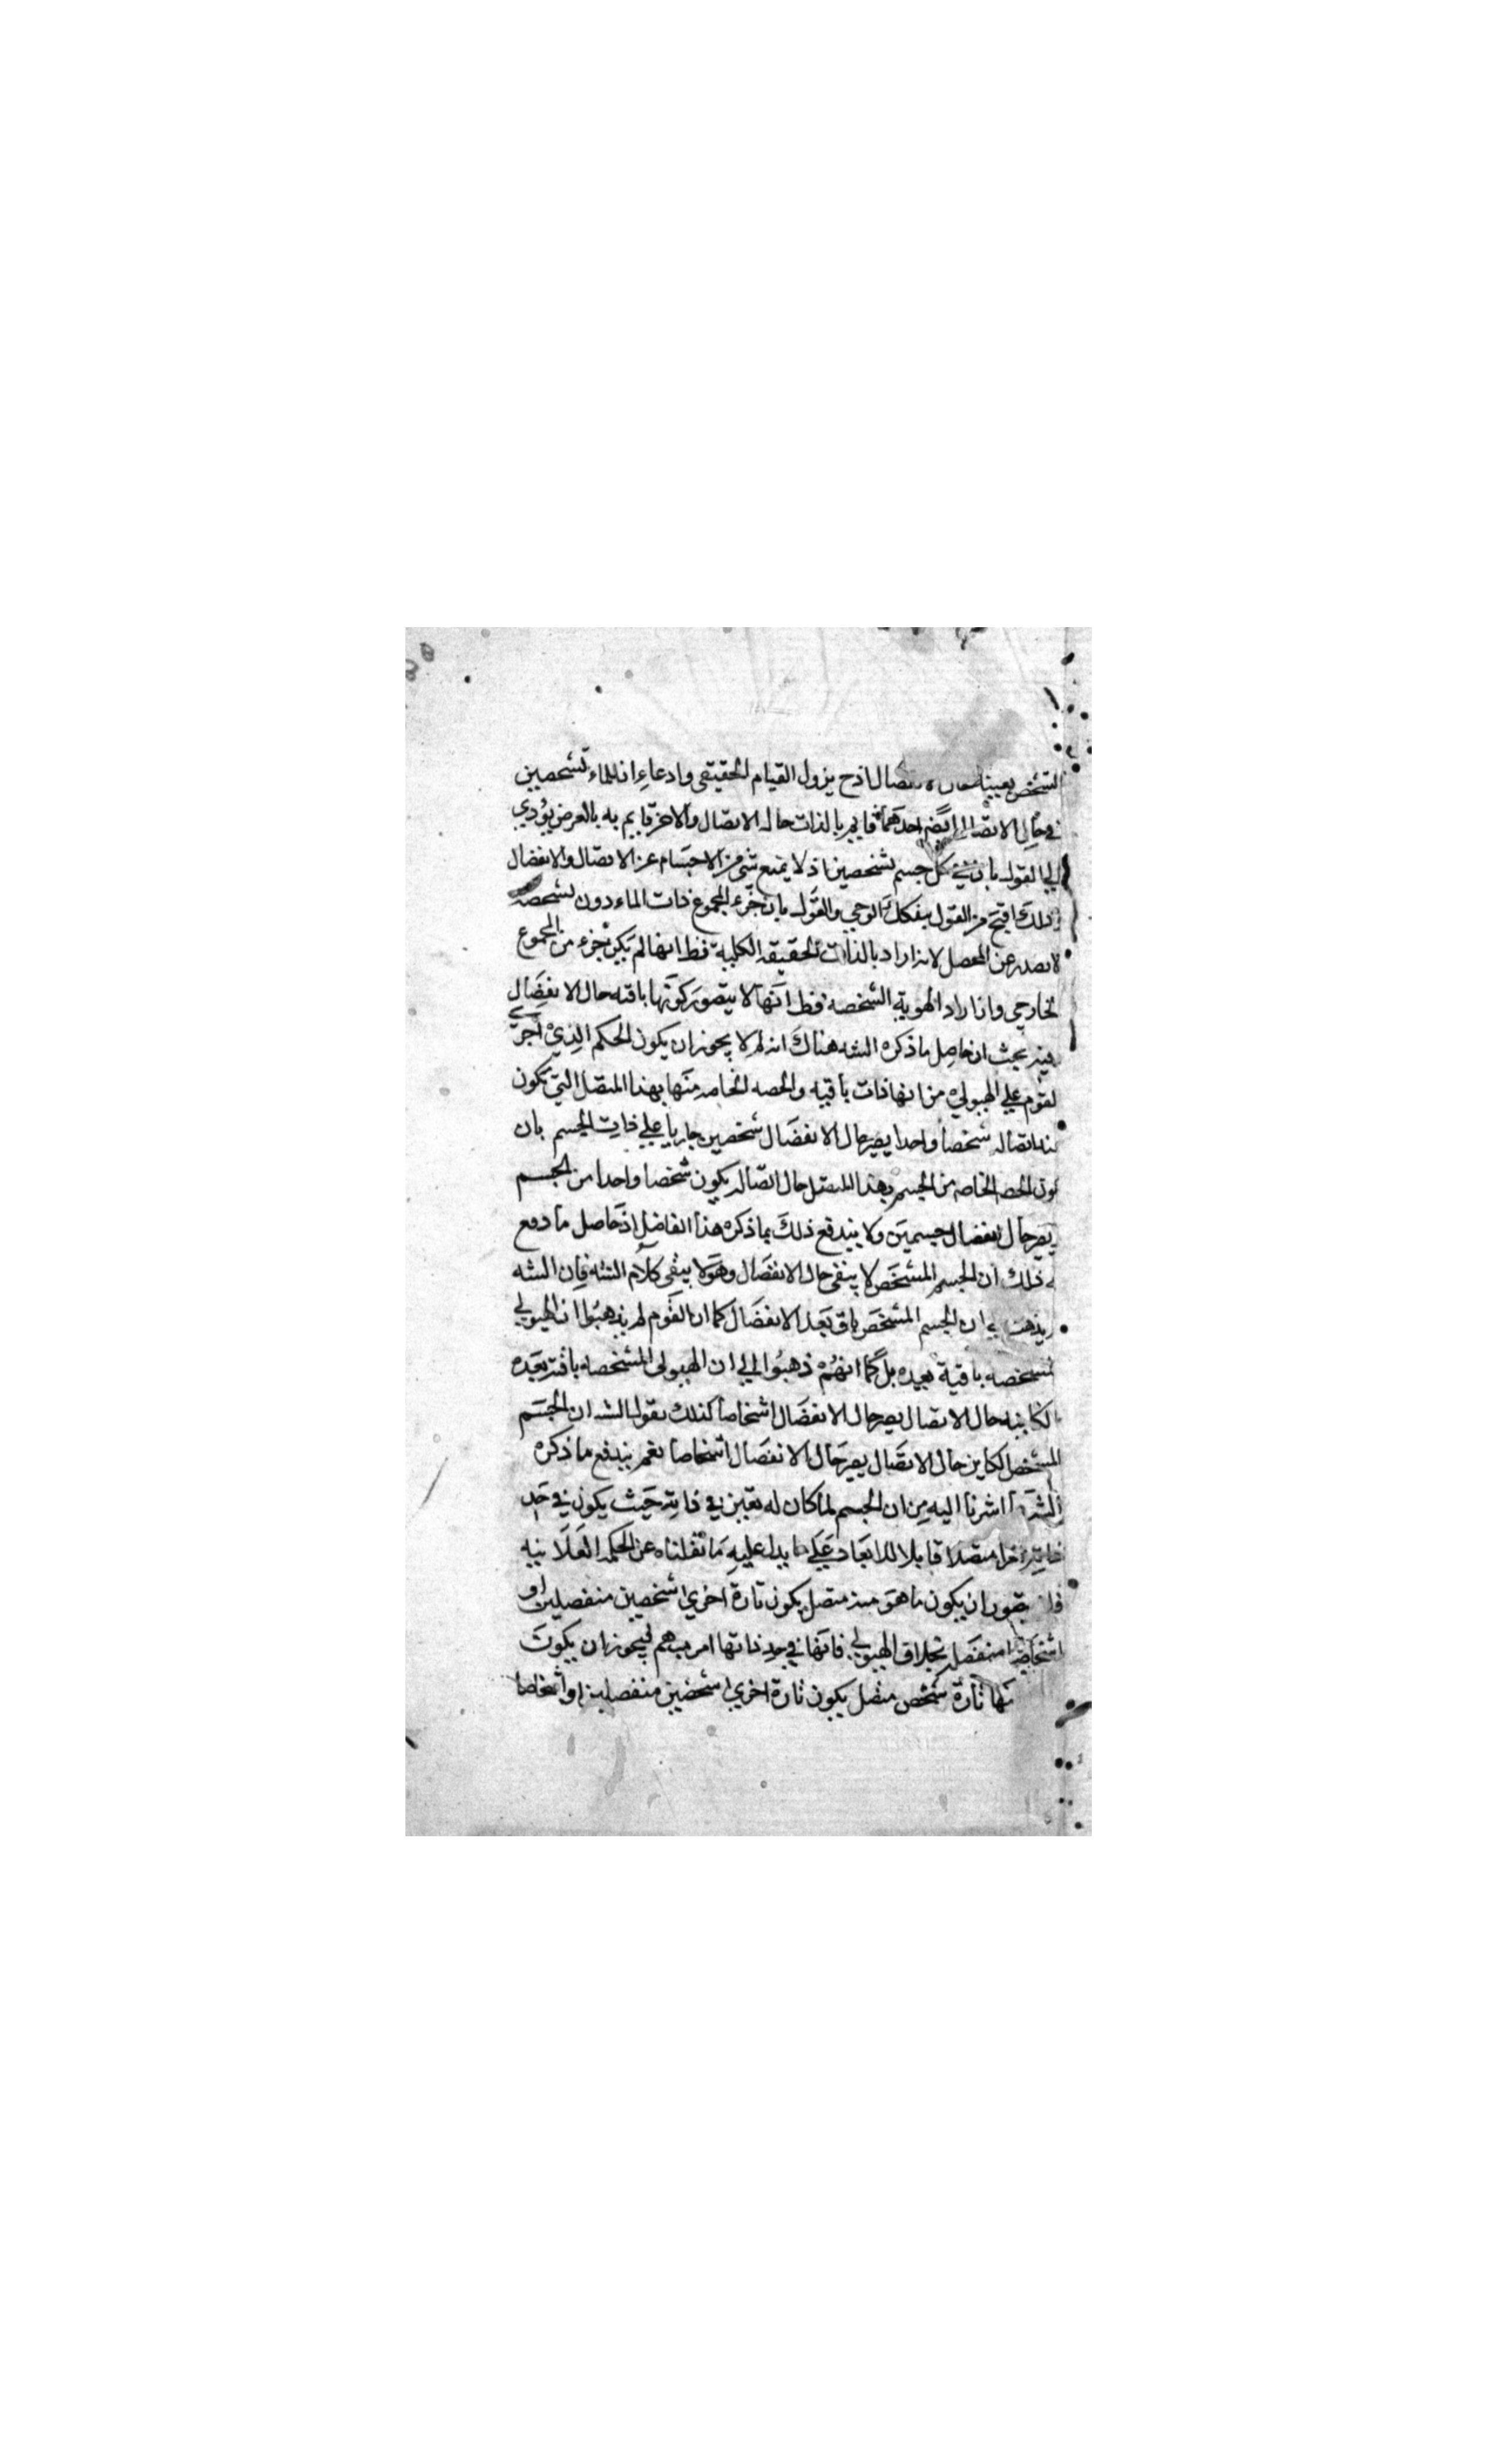 التشخص بعينه الاتصال اذ ح يزول القيام الحقيقى وادعاء ان للماء تشخصين
في حال الاتصال ايضا احدهما قايم بالذات حاله الاتصال والاخر قايم به بالعرض يؤدي
الي القول بان في كل جسم تشخصين اذ لا يمنع شى من الاجسام عن الاتصال والانفصال
وذلك اقبح من القول بتفكك الرحي والقول بان جزء المجموع ذات الماء دون تشخصه
لا يصدر عن المحصل لانه ان اراد بالذات الحقيقه الكلية فظ انها لم يكن جزء من المجموع
الخارجي وان اراد الهوية الشخصه فظ انها لا يتصور كونها باقيه حال الانفصال
فيه بحث ان حاصل ما ذكره الشه هناك انه لم لا يجوز ان يكون الحكم الذي اجري
القوم علي الهيولي من انها ذات باقيه والحصه الخاصه منها بهذا المتصل التي تكون
عند اتصاله شخصا واحدا يصير حال الانفصال شخصين جاريا علي ذات الجسم بان
يكون الحصه الخاصه من الجسم بهذا المتصل حال اتصاله يكون شخصا واحدا من الجسم
يصير حال انفصال جسمين ولا يندفع ذلك بما ذكره هذا الفاضل اذ حاصل ما دفع
به ذلك ان الجسم المشخص لا يبقي حال الانفصال وهو لا ينفى كلام الشه فان الشه
لم يذهب الي ان الجسم المشخص باق بعد الانفصال كما ان القوم لم يذهبوا ان الهيولي
المشخصه باقية بعيده بل كما انهم ذهبوا الي ان الهيولي المشخصه باقية بعده
الكاينه حال الاتصال يصير حال الانفصال اشخاصا كذلك يقول الشه ان الجسم
المشخص الكاين حال الاتصال يصير حال الانفصال اشخاصا نعم يندفع ما ذكره
الشه بما اشرنا اليه من ان الجسم لما كان له تعين في ذاته حيث يكون في حد
ذاته امرا متصلا قابلا للابعاد علي ما يدل عليه ما نقلناه عن الحكمه العلائيه
فلا يتصور ان يكون ما هو منه متصل يكون تارة اخري شخصين منفصلين او
اشخاصا منفصله بخلاف الهيولي فانها في حد ذاتها امر مبهم فيجوز ان يكون
منها تارة شخص متصل يكون تارة اخري شخصين منفصلين او اشخاصا